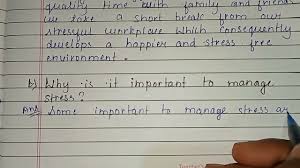 quality time with family and friends
we take a short break from our
stressful workplace which consequently
develops a happier and stress free
environment.
b) Why is it important to manage
stress?
Ans Some important to manage stress ar